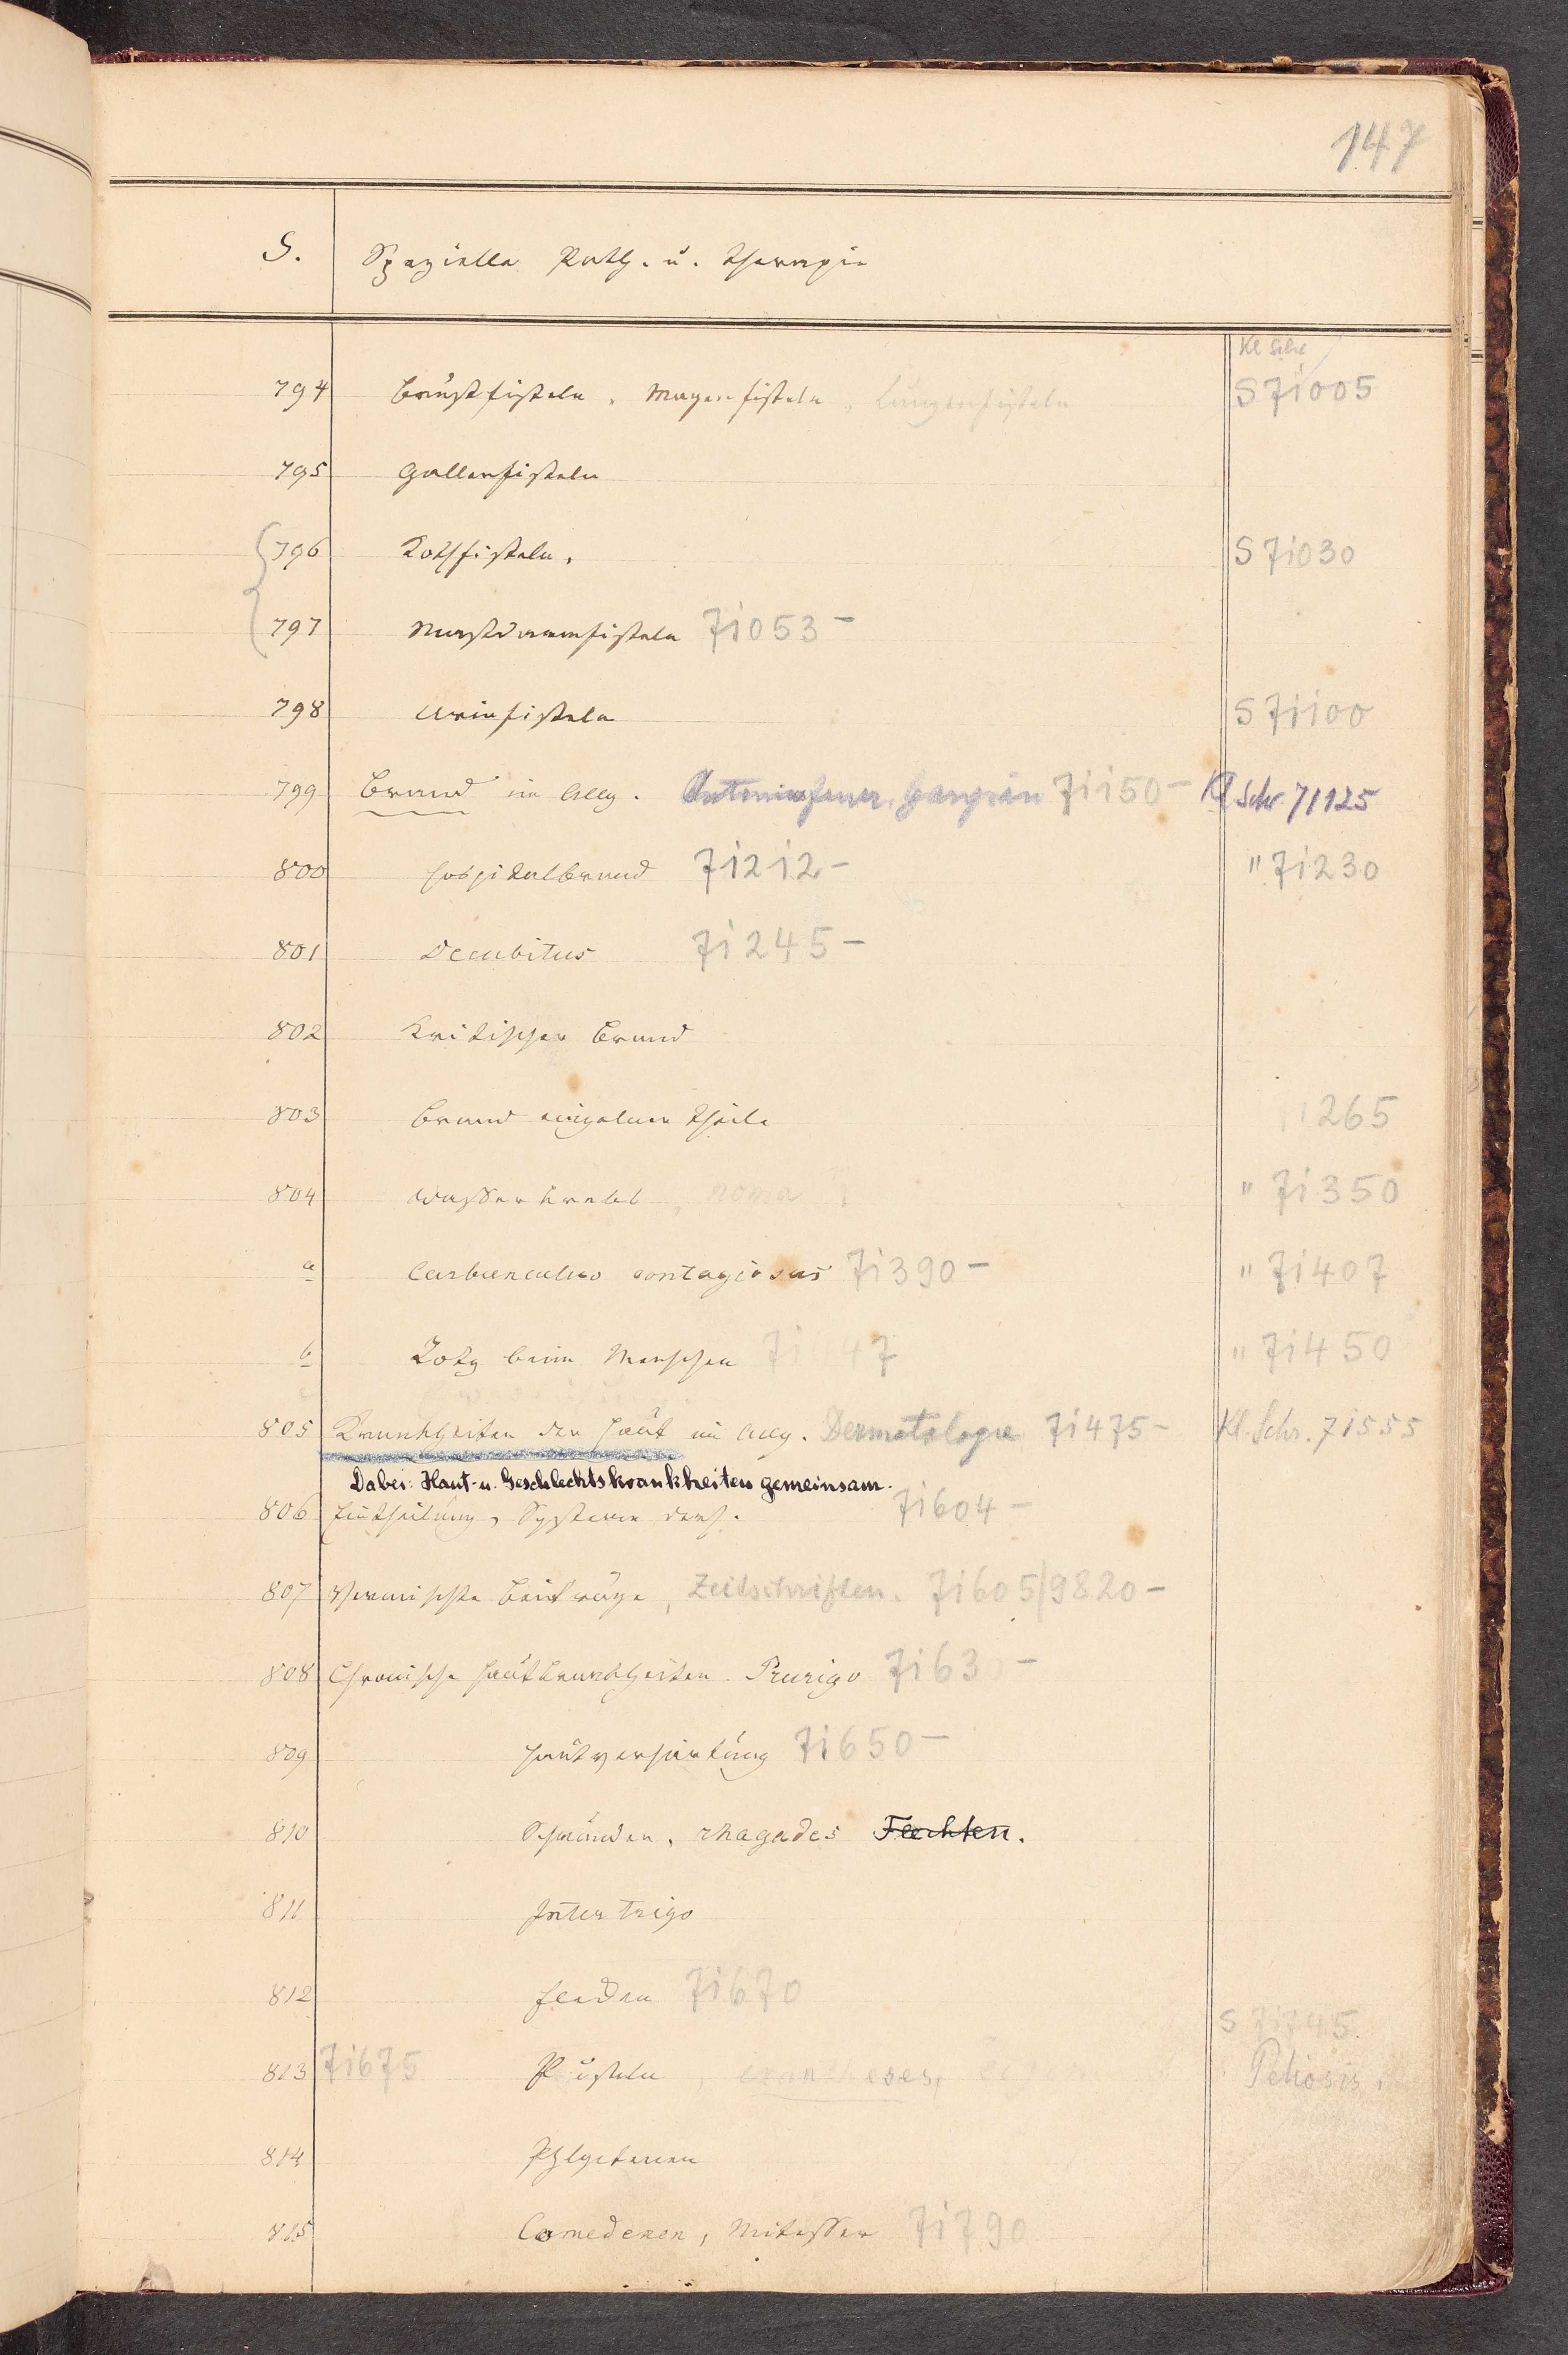 147
S. Spezielle Path. u. Therapie
Kl Schr
794 Brustfisteln, Magenfisteln, Lungenfisteln S 71005
795 Gallenfisteln
796 Kothfisteln, S 71030
797 Mastdarmfisteln 71053 -
798 Urinfisteln S 71100
799 Brand im Allg. Antoniusfeuer, Gangrän 71150 - Kl Schr. 71125
800 Hospitalbrand 71212 - " 71230
801 Decubitus 71245 -
802 Kritischer Brand
803 Brand einzelner Theile 265
804 Wasserkrebs, noma " 71350
a Carbunculus contagiosus 71390 - " 71407
b Rotz beim Menschen " 71450
805 Krankheiten der Haut im Allg. Dermatologie 71475 - Kl. Schr. 71555
Dabei: Haut- u. Geschlechtskrankheiten gemeinsam.
806 Eintheilung, Systeme ders. 71604 -
807 Vermischte Beiträge, Zeitschriften. 71605/9820 -
808 Chronische Hautkrankheiten. Prurigo 71630 -
809 Hautverhärtung 71650 -
810 Schrunden, rhagades Flechten.
811 Intertrigo
812 Flechten 71670
S 71745.
813 71675 Pusteln, Peliosis,
814 Phlyctenen
815 Comedenen, Mitesser 71790